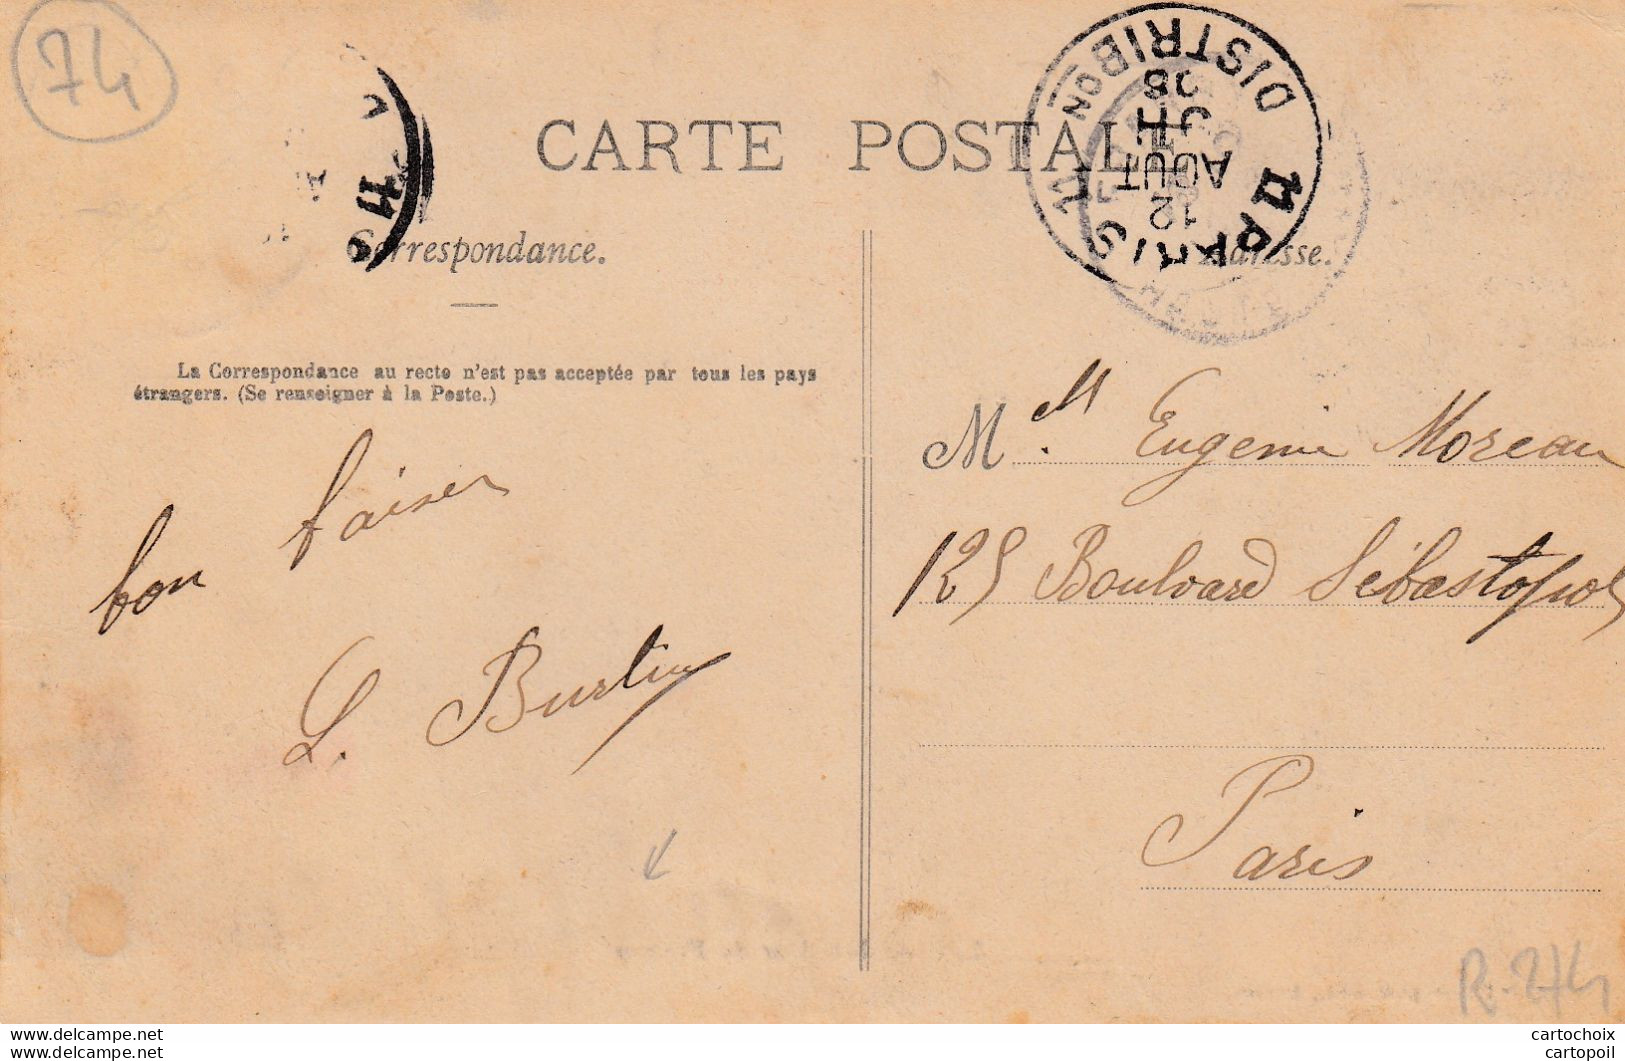 74
CARTE POSTALE
PARIS 11 DISTRIBON
12
AOUT
08
Correspondance.
Adresse.
La Correspondance au recto n'est pas acceptée par tous les pays
étrangers. (Se renseigner à la Poste.)
Mell Eugenie Moreau
125 Boulvard Sébastopol
Paris
bon baiser
L. Burlin
R-74
cartochoix
cartopoil